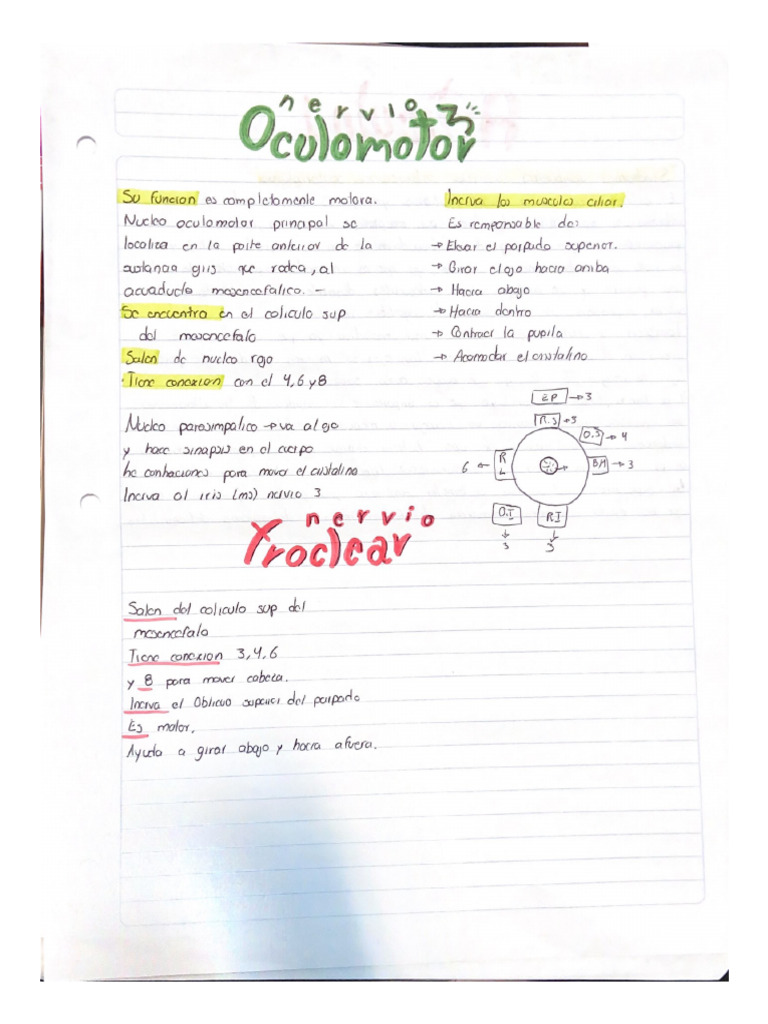 nervio 3
Oculomotor
Su funcion es completamente motora.
Nucleo oculomotor principal se
localiza en la parte anterior de la
sustancia gris que rodea, al
acuaducto mesencefalico. -
Se encuentra en el coliculo sup
del mesencefalo
Salen de nucleo rojo
·Tiene conexion con el 4, 6 y 8
Inerva los musculos ciliar.
Es responsable de:
→ Elevar el parpado superior.
→ Girar el ojo hacia arriba
→ Hacia abajo
→ Hacia dentro
→ Contraer la pupila
→ Acomodar el cristalino
Nucleo parasimpatico → va al ojo
y hace sinapsis en el cuerpo
para mover el cristalino
Inerva al iris (ms) nervio 3
E P → 3
R.S → 3
O.S → 4
R L
6 ←
→ 3
O.I
↓
3
R.I
↓
3
nervio
Troclear
Salen del coliculo sup del
mesencefalo
Tiene conexion 3, 4, 6
y 8 para mover cabeza.
Inerva el Oblicuo superior del parpado
Es motor.
Ayuda a girar abajo y hacia afuera.